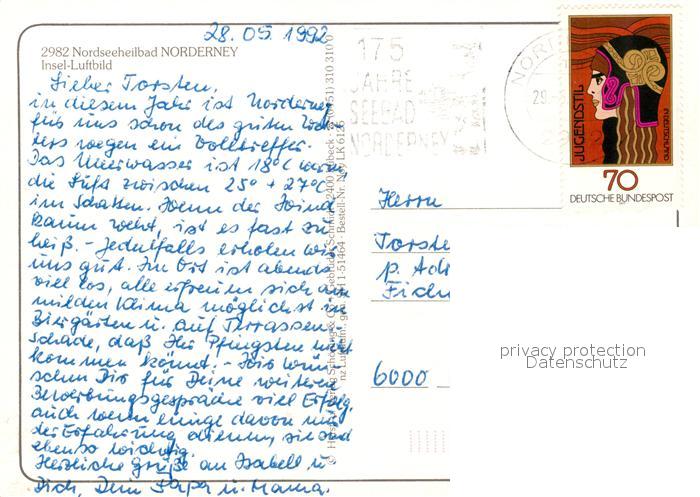 28.05.1992
2982 Nordseeheilbad NORDERNEY
Insel-Luftbild
Lieber Torsten,
in diesem Jahr ist Norderney
für uns schon des guten Wet-
ters wegen ein Volltreffer.
Das Meerwasser ist 18°C warm
die Luft zwischen 25° + 27°C
im Schatten. Wenn der Wind
kaum weht, ist es fast zu
heiß. - Jedenfalls erholen wir
uns gut. Im Ort ist abends
viel los, alle erfreuen sich am
milden Klima möglichst in
Biergärten u. auf Terrassen.
Schade, daß Ihr Pfingsten nicht
kommen könnt. - Wir wün-
schen Dir für Deine weiteren
Bewerbungsgespräche viel Erfolg,
auch wenn einige davon nur
der Erfahrung dienen, sie sind
ebenso wichtig.
Herzliche Grüße an Isabell u.
Dich, Dein Papa u. Mama.
175
JAHRE
SEEBAD
NORDERNEY
JUGENDSTIL
IN DEUTSCHLAND
70
DEUTSCHE BUNDESPOST
Herrn
Torste
p. Adr
6000
privacy protection
Datenschutz